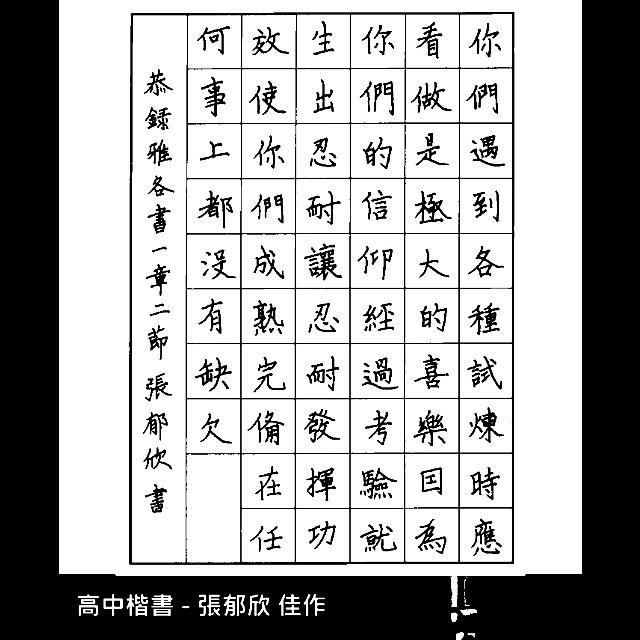 你們遇到各種試煉時應
看做是極大的喜樂因為
你們的信仰經過考驗就
生出忍耐讓忍耐發揮功
效使你們成熟完備在任
何事上都沒有缺欠
恭錄雅各書一章二節張郁欣書
高中楷書 - 張郁欣 佳作